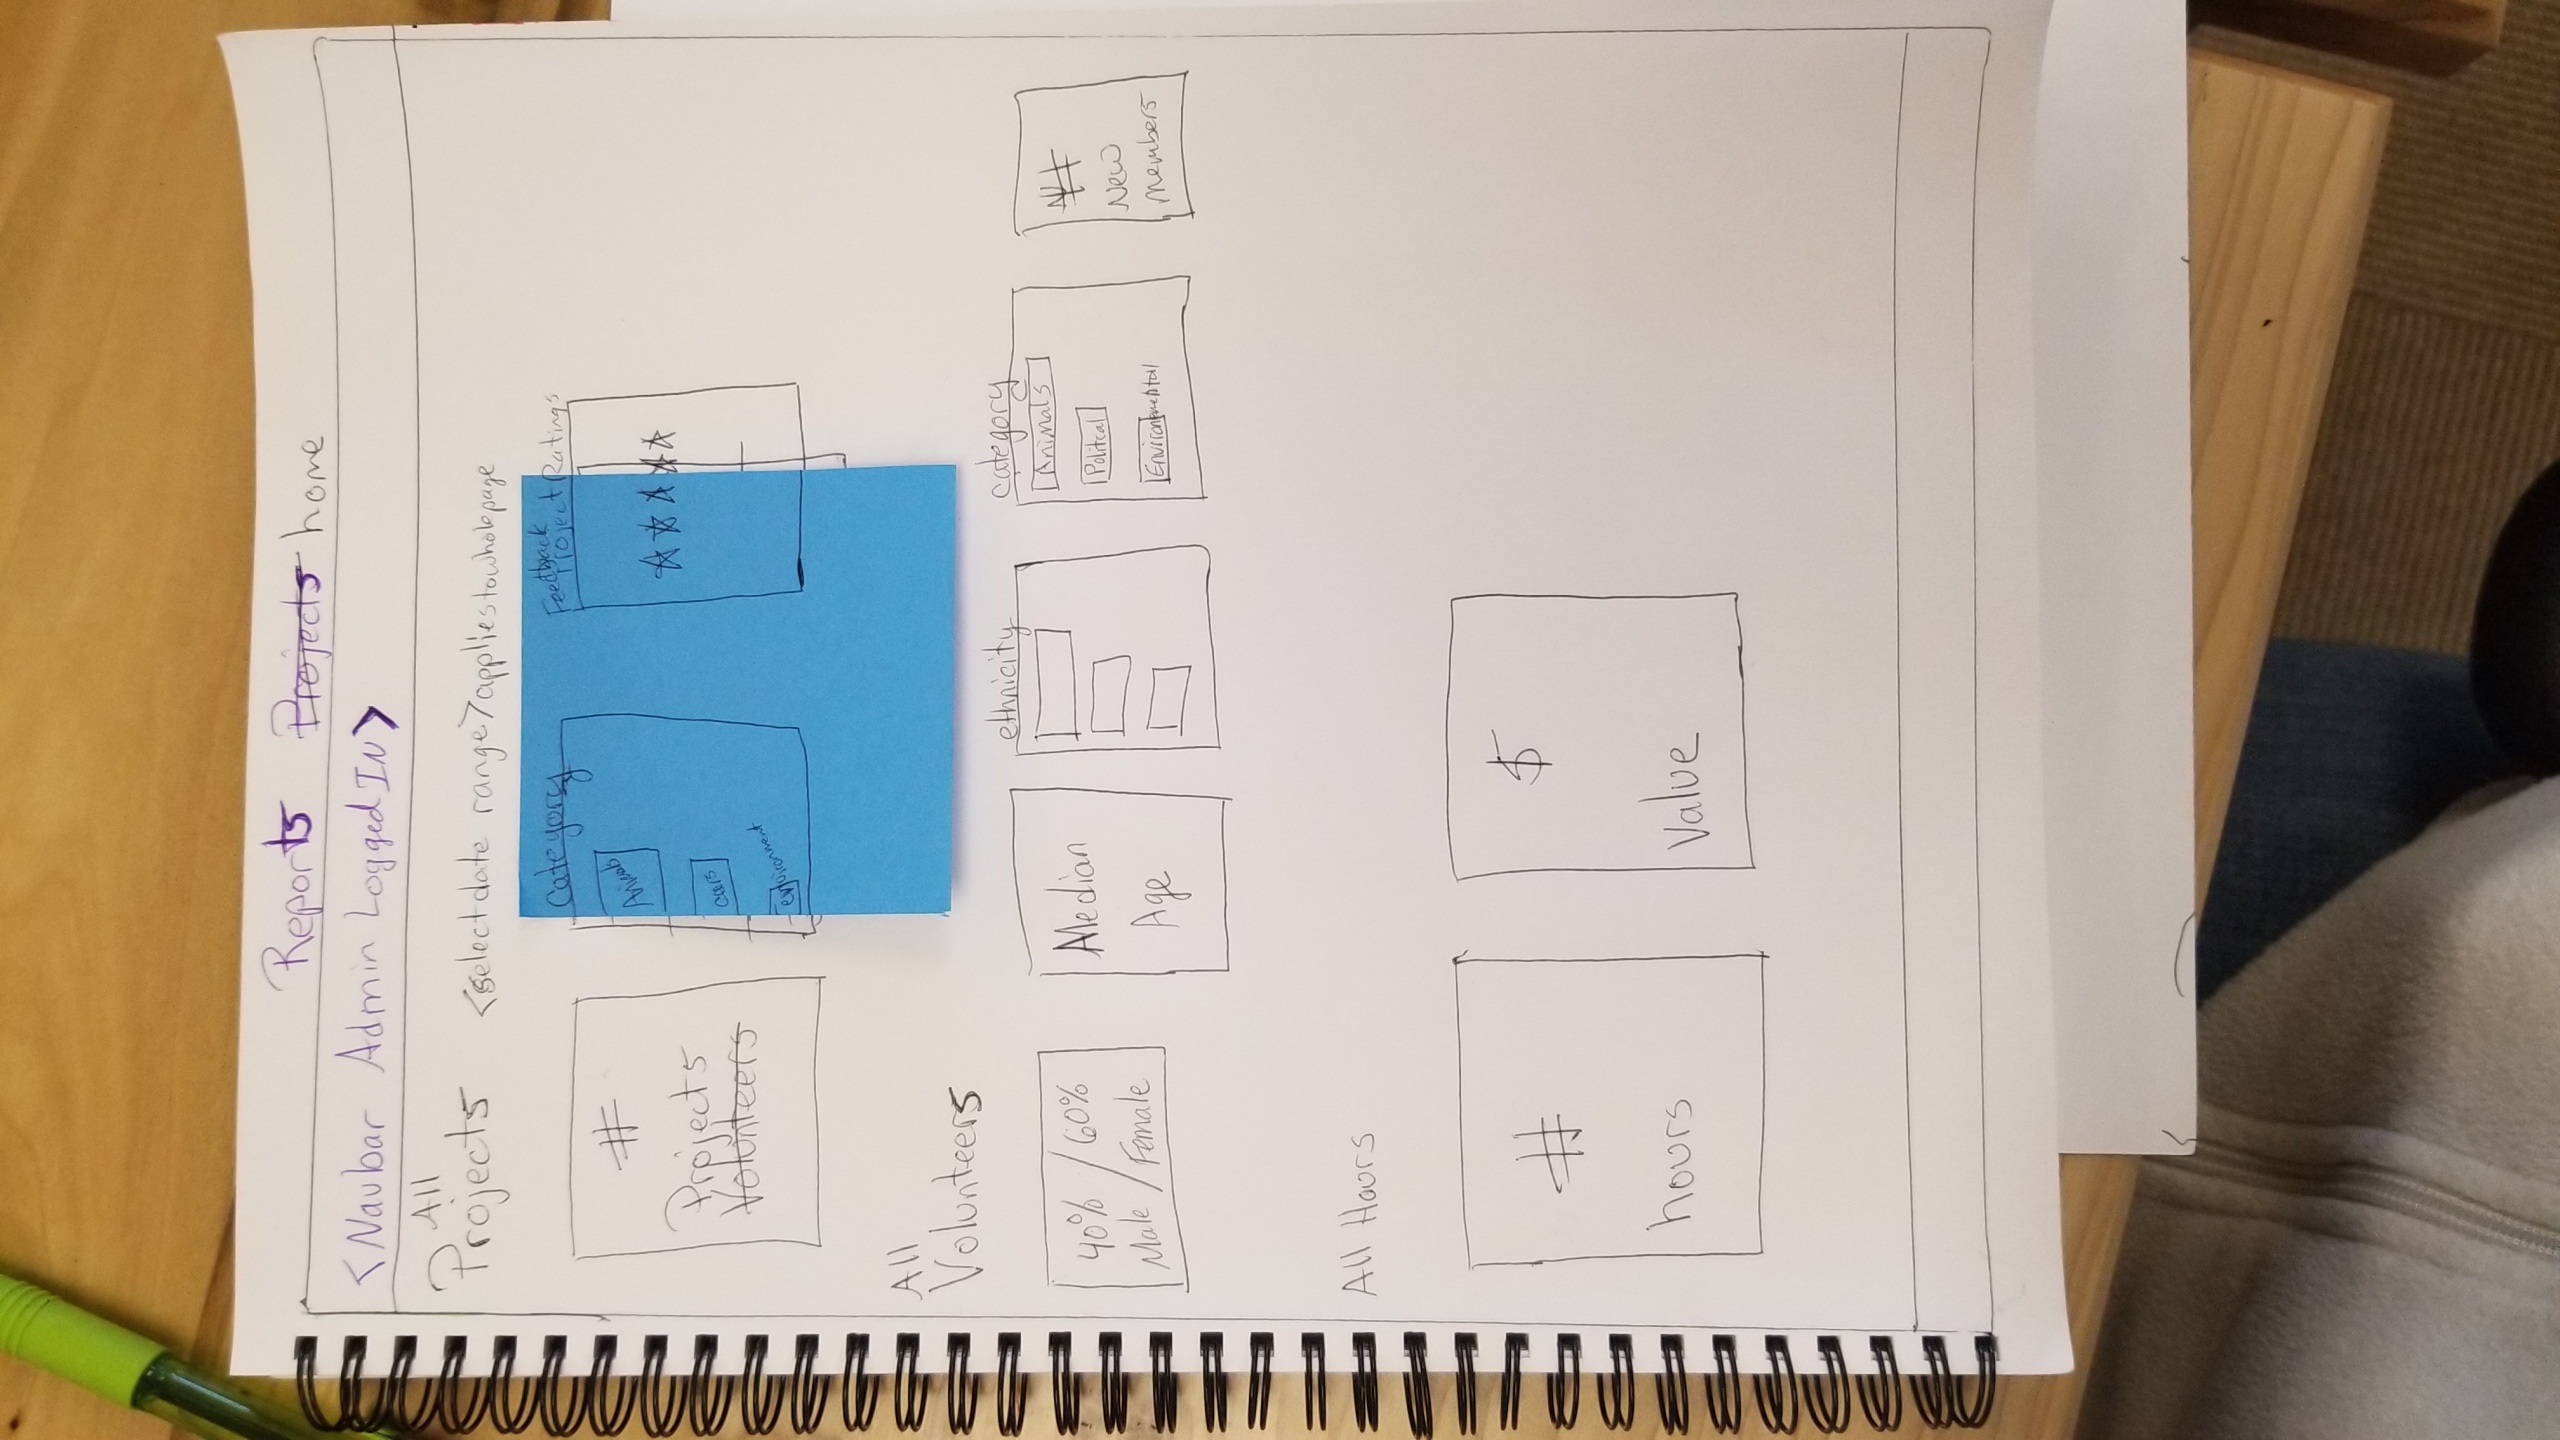 Reports Projects home
<Navbar Admin Logged IN>
All
Projects <select date range> applies to whole page
#
Projects
Volunteers
Category
Animals
cars
environment
Feedback
Project Ratings
All
Volunteers
40% / 60%
Male / Female
Median
Age
ethnicity
category
Animals
Politcal
Environmental
#
New
members
All Hours
#
hours
$
Value